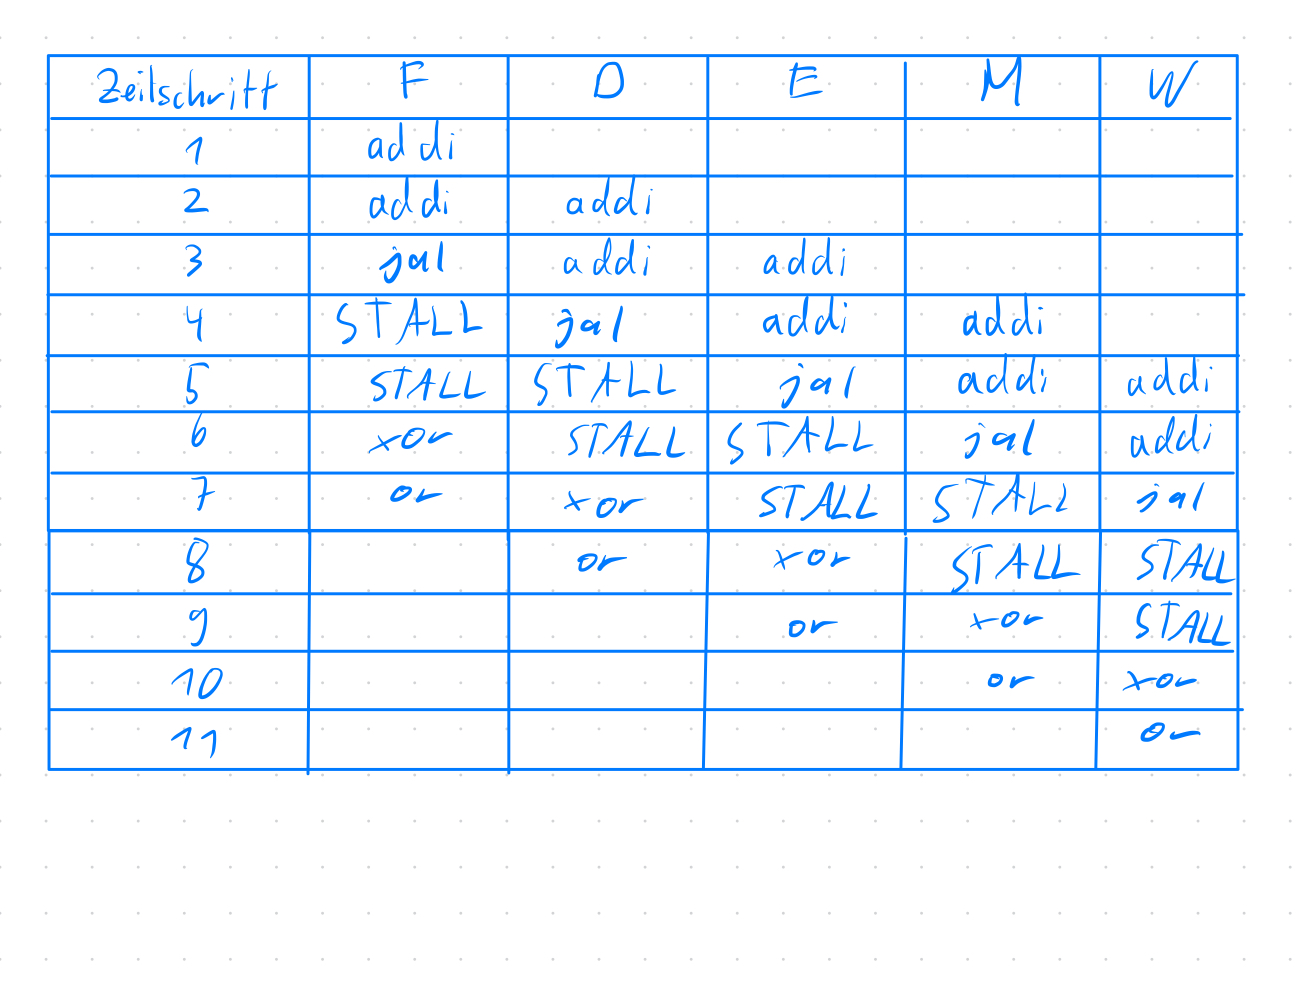 Zeitschritt F D E M W
1 addi
2 addi addi
3 jal addi addi
4 STALL jal addi addi
5 STALL STALL jal addi addi
6 xor STALL STALL jal addi
7 or xor STALL STALL jal
8 or xor STALL STALL
9 or xor STALL
10 or xor
11 or